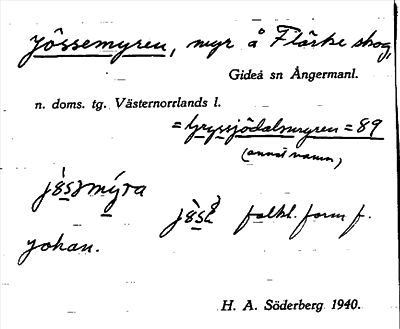 Jössemyren, myr å Flärke skog,
Gideå sn Ångermanl.
n. doms. tg. Västernorrlands l.
= Gryssjödalsmyren = 89
(annat namn)
folkl. form f.
Johan.
H. A. Söderberg 1940.